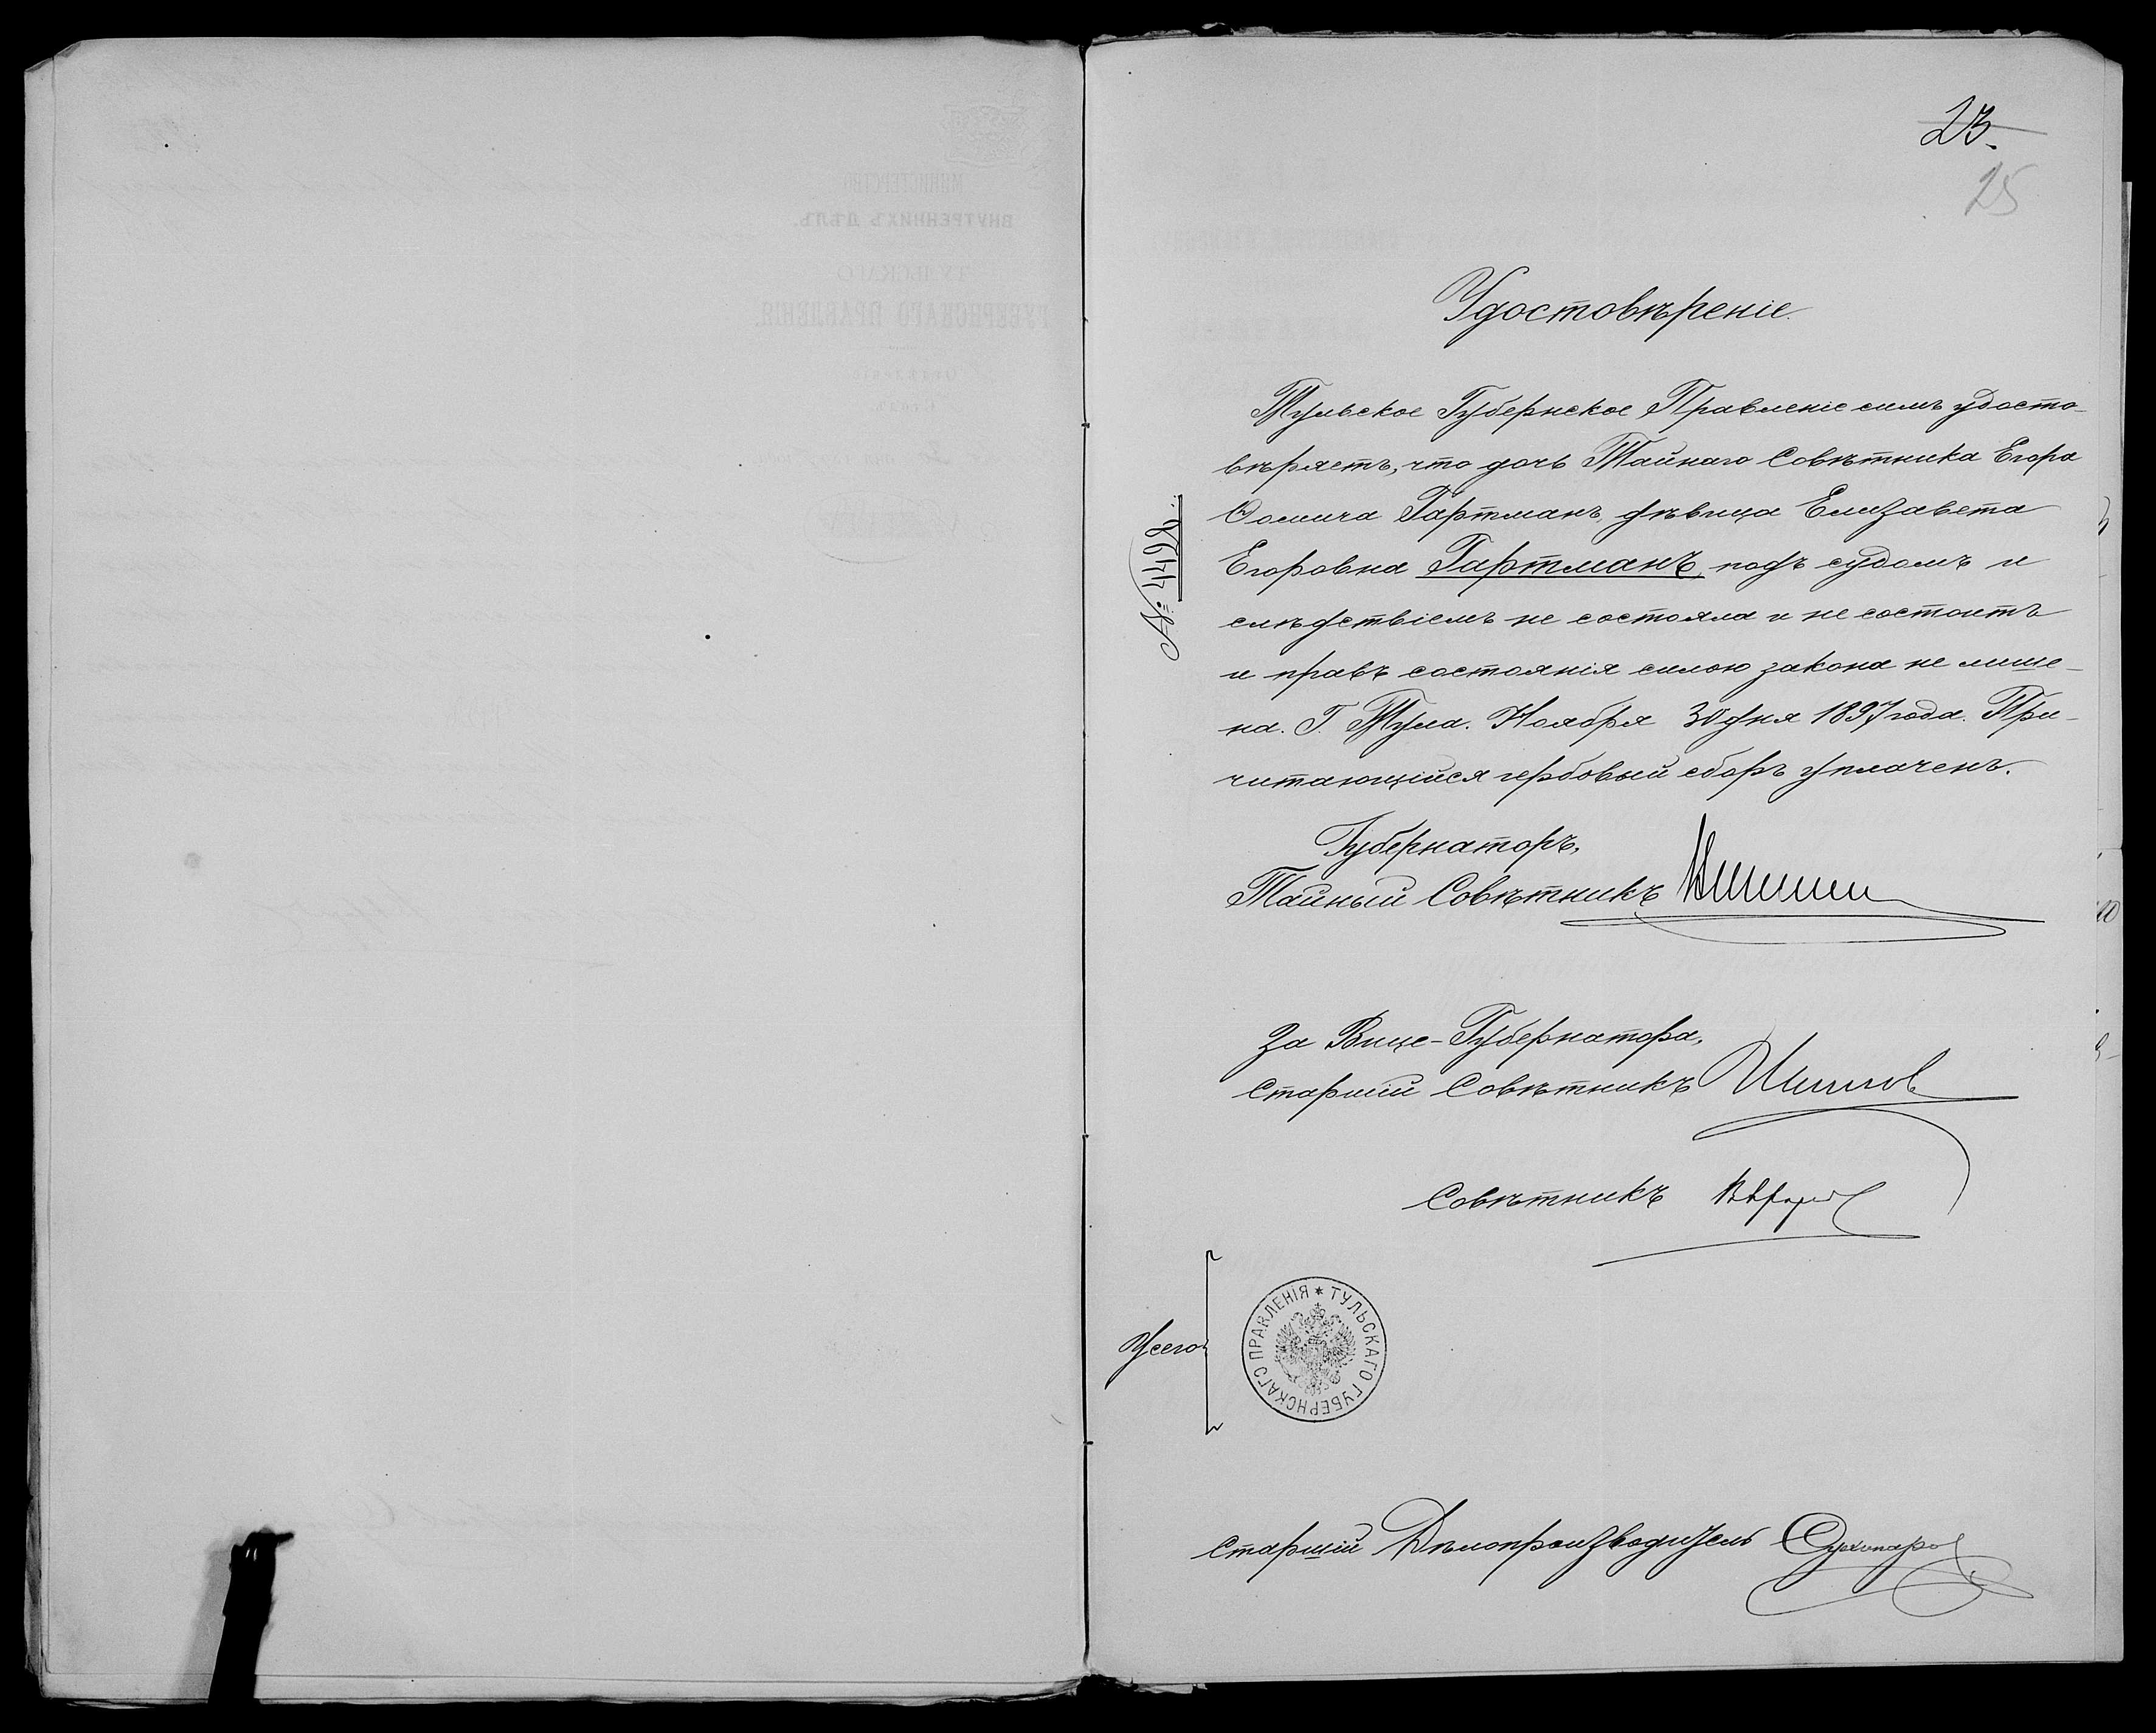 23.
25
Удостовѣреніе.
Тульское Губернское Правленіе симъ удосто-
вѣряетъ, что дочь Тайнаго Совѣтника Егора
Ѳомича Гартманъ, дѣвица Елизавета
Егоровна Гартманъ, подъ судомъ и
слѣдствіемъ не состояла и не состоитъ
и правъ состоянія силою закона не лише-
на. Г. Тула. Ноября 30 дня 1897 года. При-
читающійся гербовый сборъ уплаченъ.
Губернаторъ,
Тайный Совѣтникъ
За Вице-Губернатора,
Старшій Совѣтникъ
Совѣтникъ
ТУЛЬСКАГО ГУБЕРНСКАГО ПРАВЛЕНІЯ
Старшій Дѣлопроизводитель
МИНИСТЕРСТВО
ВНУТРЕННИХЪ ДѢЛЪ.
ТУЛЬСКАГО
ГУБЕРНСКАГО ПРАВЛЕНІЯ